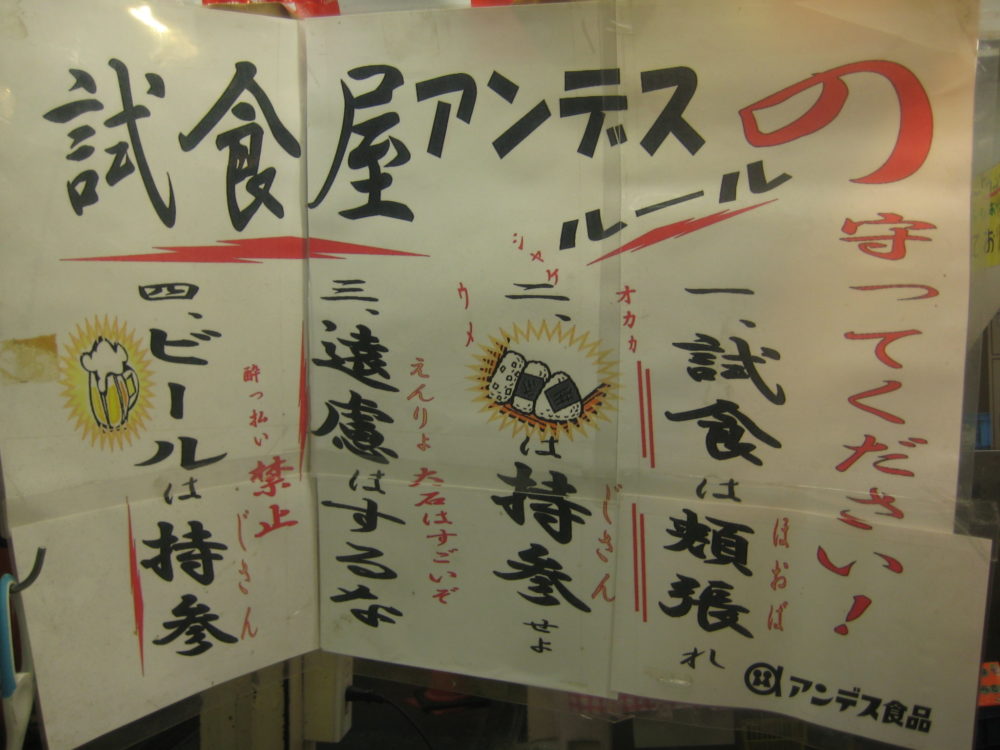 試食屋アンデスの
ルール
守ってください!
一、試食は頬張れ
ほおば
オカカ
二、は持参せよ
シャケ
じさん
ウメ
三、遠慮はするな
えんりょ
大石はすごいぞ
四、ビールは持参
酔っ払い禁止
じさん
アンデス食品